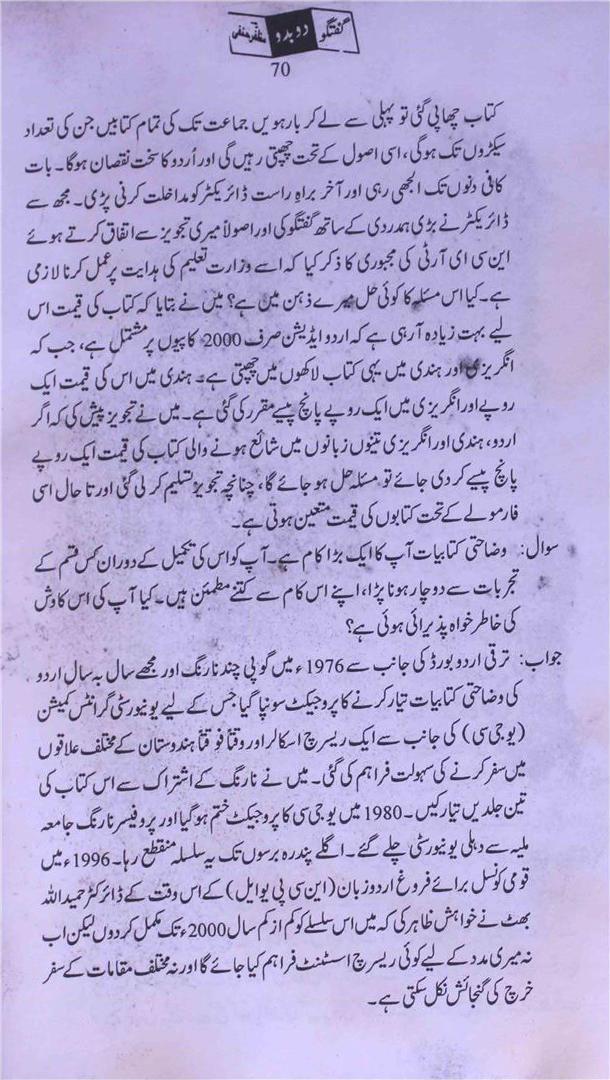 گفتگو دو بدو مظفر حنفی
70
کتاب چھاپی گئی تو پہلی سے لے کر بارھویں جماعت تک کی تمام کتابیں جن کی تعداد
سیکڑوں تک ہوگی، اسی اصول کے تحت چھپتی رہیں گی اور اُردو کا سخت نقصان ہوگا۔ بات
کافی دنوں تک الجھی رہی اور آخر براہِ راست ڈائریکٹر کو مداخلت کرنی پڑی۔ مجھ سے
ڈائریکٹر نے بڑی ہمدردی کے ساتھ گفتگو کی اور اصولاً میری تجویز سے اتفاق کرتے ہوئے
این سی ای آر ٹی کی مجبوری کا ذکر کیا کہ اسے وزارت تعلیم کی ہدایت پر عمل کرنا لازمی
ہے۔ کیا اس مسئلہ کا کوئی حل میرے ذہن میں ہے؟ میں نے بتایا کہ کتاب کی قیمت اس
لیے بہت زیادہ آرہی ہے کہ اردو ایڈیشن صرف 2000 کاپیوں پر مشتمل ہے، جب کہ
انگریزی اور ہندی میں یہی کتاب لاکھوں میں چھپتی ہے۔ ہندی میں اس کی قیمت ایک
روپے اور انگریزی میں ایک روپے پانچ پیسے مقرر کی گئی ہے۔ میں نے تجویز پیش کی کہ اگر
اردو، ہندی اور انگریزی تینوں زبانوں میں شائع ہونے والی کتاب کی قیمت ایک روپے
پانچ پیسے کر دی جائے تو مسئلہ حل ہو جائے گا، چنانچہ تجویز تسلیم کر لی گئی اور تا حال اسی
فارمولے کے تحت کتابوں کی قیمت متعین ہوتی ہے۔
سوال: وضاحتی کتابیات آپ کا ایک بڑا کام ہے۔ آپ کو اس کی تکمیل کے دوران کس قسم کے
تجربات سے دوچار ہونا پڑا، اپنے اس کام سے کتنے مطمئن ہیں۔ کیا آپ کی اس کاوش
کی خاطر خواہ پذیرائی ہوئی ہے؟
جواب: ترقی اردو بورڈ کی جانب سے 1976ء میں گوپی چند نارنگ اور مجھے سال بہ سال اردو
کی وضاحتی کتابیات تیار کرنے کا پروجیکٹ سونپا گیا جس کے لیے یونیورسٹی گرانٹس کمیشن
(یو جی سی) کی جانب سے ایک ریسرچ اسکالر اور وقتاً فوقتاً ہندوستان کے مختلف علاقوں
میں سفر کرنے کی سہولت فراہم کی گئی۔ میں نے نارنگ کے اشتراک سے اس کتاب کی
تین جلدیں تیار کیں۔ 1980 میں یو جی سی کا پروجیکٹ ختم ہوگیا اور پروفیسر نارنگ جامعہ
ملیہ سے دہلی یونیورسٹی چلے گئے۔ اگلے پندرہ برسوں تک یہ سلسلہ منقطع رہا۔ 1996ء میں
قومی کونسل برائے فروغ اردو زبان (این سی پی یو ایل) کے اس وقت کے ڈائرکٹر حمید اللہ
بھٹ نے خواہش ظاہر کی کہ میں اس سلسلے کو کم از کم سال 2000ء تک مکمل کر دوں لیکن اب
نہ میری مدد کے لیے کوئی ریسرچ اسسٹنٹ فراہم کیا جائے گا اور نہ مختلف مقامات کے سفر
خرچ کی گنجائش نکل سکتی ہے۔